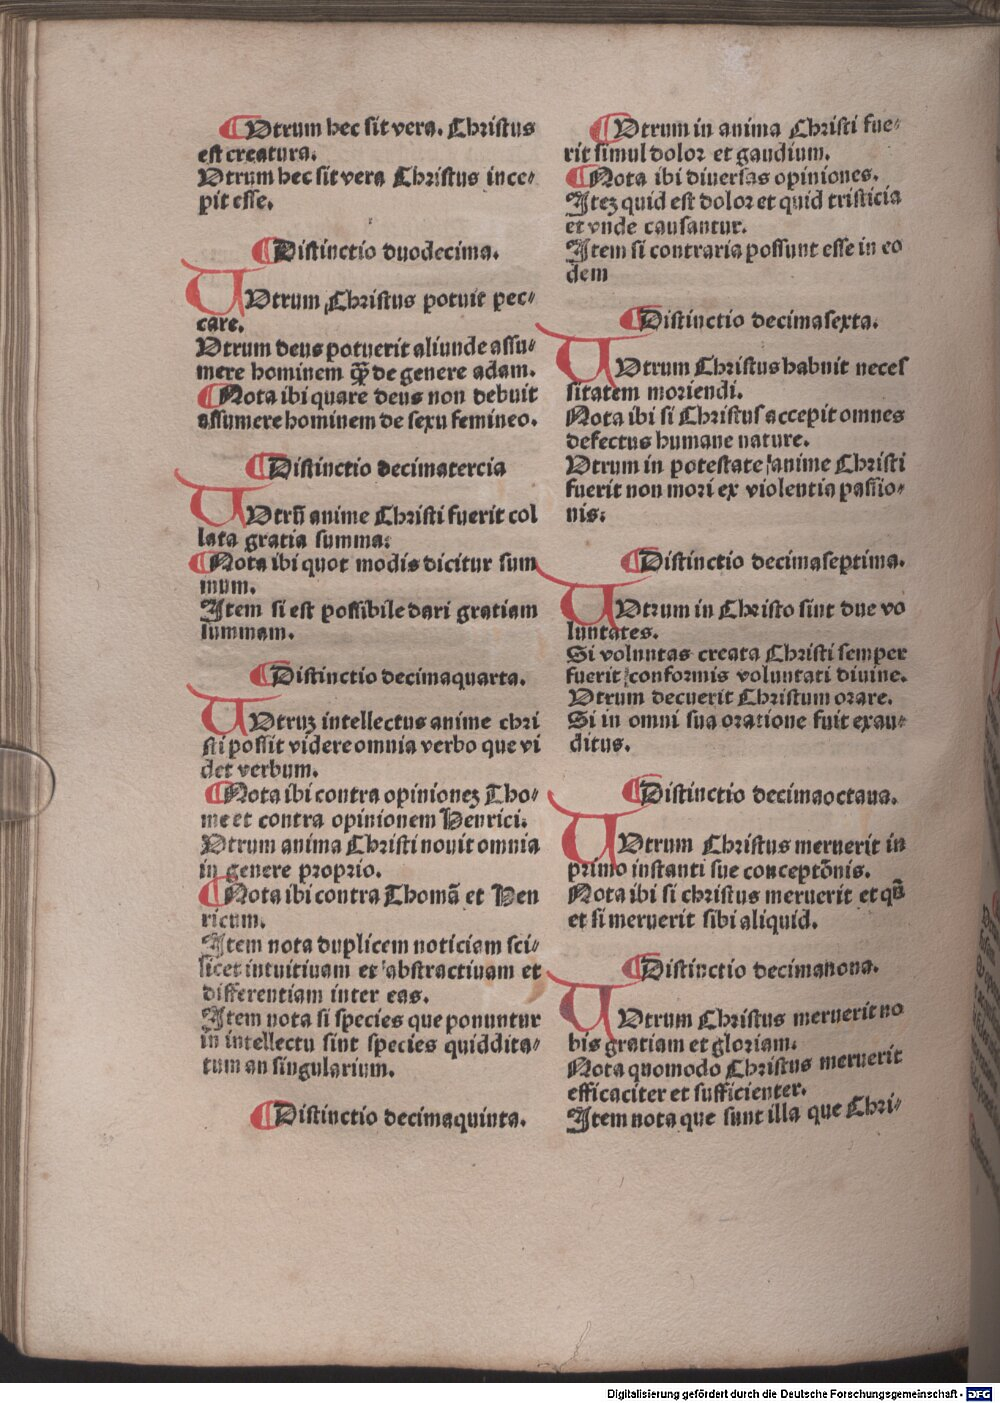 ¶Utrum hec sit vera. Christus
est creatura.
Utrum hec sit vera Christus ince⸗
pit esse.
¶Distinctio duodecima.
UUtrum Christus potuit pec⸗
care.
Utrum deus potuerit aliunde assu⸗
mere hominem qȝ de genere adam.
¶Nota ibi quare deus non debuit
assumere hominem de sexu femineo.
¶Distinctio decimatercia
UUtrū anime Christi fuerit col
lata gratia summa:
¶Nota ibi quot modis dicitur sum
mum.
Item si est possibile dari gratiam
summam.
¶Distinctio decimaquarta.
UUtruȝ intellectus anime chri
sti possit videre omnia verbo que vi
det verbum.
¶Nota ibi contra opinioneȝ Tho⸗
me et contra opinionem Henrici.
Utrum anima Christi novit omnia
in genere proprio.
¶Nota ibi contra Thomā et Hen
ricum.
Item nota duplicem noticiam sci⸗
licet intuitiuam et abstractiuam et
differentiam inter eas.
Item nota si species que ponuntur
in intellectu sint species quiddita⸗
tum an singularium.
¶Distinctio decimaquinta.
¶Utrum in anima Christi fue⸗
rit simul dolor et gaudium.
¶Nota ibi diuersas opiniones.
Iteȝ quid est dolor et quid tristicia
et vnde causantur.
Item si contraria possunt esse in eo
dem
¶Distinctio decimasexta.
UUtrum Christus habuit neces
sitatem moriendi.
Nota ibi si Christus accepit omnes
defectus humane nature.
Utrum in potestate anime Christi
fuerit non mori ex violentia passio⸗
nis:
¶Distinctio decimaseptima.
UUtrum in Christo sint due vo
luntates.
Si voluntas creata Christi semper
fuerit conformis voluntati diuine.
Utrum decuerit Christum orare.
Si in omni sua oratione fuit exau⸗
ditus.
¶Distinctio decimaoctaua.
UUtrum Christus meruerit in
primo instanti sue conceptōnis.
Nota ibi si christus meruerit et qū
et si meruerit sibi aliquid.
¶Distinctio decimanona.
UUtrum Christus meruerit no
bis gratiam et gloriam.
Nota quomodo Christus meruerit
efficaciter et sufficienter.
Item nota que sunt illa que Chri⸗
Digitalisierung gefördert durch die Deutsche Forschungsgemeinschaft - DFG